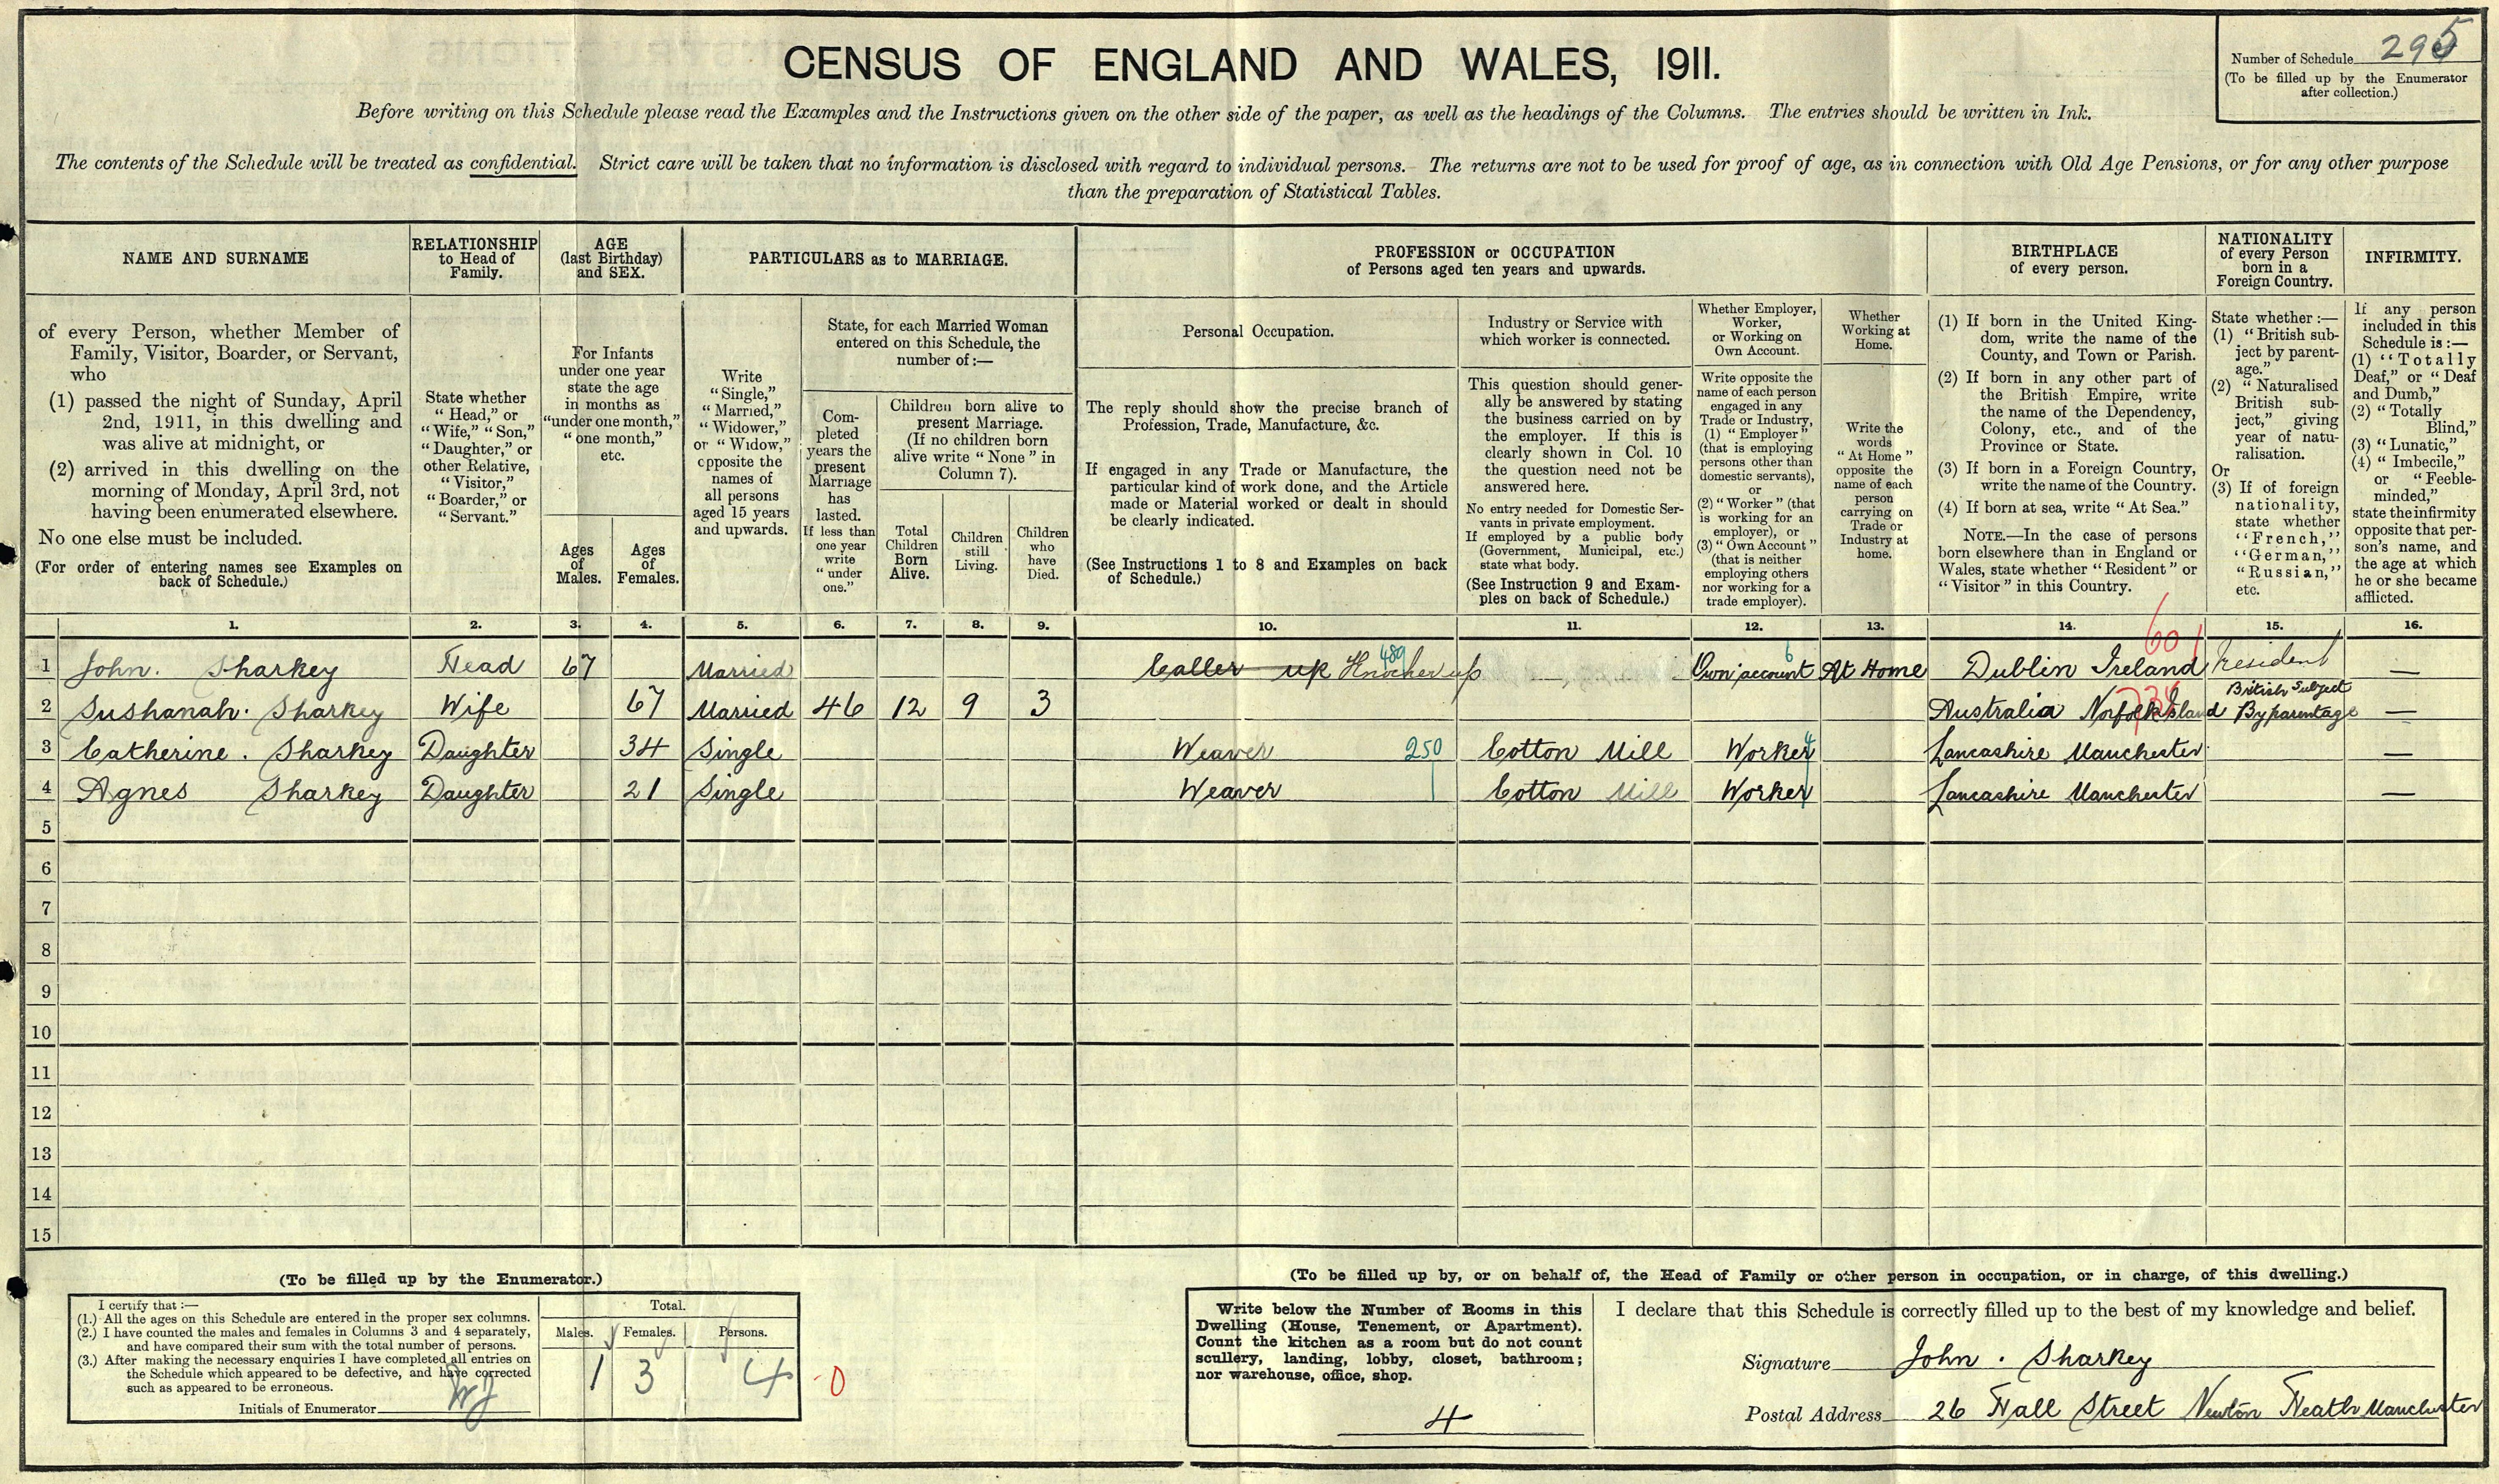 CENSUS OF ENGLAND AND WALES, 1911.
Number of Schedule 295
(To be filled up by the Enumerator
after collection.)
Before writing on this Schedule please read the Examples and the Instructions given on the other side of the paper, as well as the headings of the Columns. The entries should be written in Ink.
The contents of the Schedule will be treated as confidential. Strict care will be taken that no information is disclosed with regard to individual persons. The returns are not to be used for proof of age, as in connection with Old Age Pensions, or for any other purpose
than the preparation of Statistical Tables.
NAME AND SURNAME
of every Person, whether Member of
Family, Visitor, Boarder, or Servant,
who
(1) passed the night of Sunday, April
2nd, 1911, in this dwelling and
was alive at midnight, or
(2) arrived in this dwelling on the
morning of Monday, April 3rd, not
having been enumerated elsewhere.
No one else must be included.
(For order of entering names see Examples on
back of Schedule.)
RELATIONSHIP
to Head of
Family.
State whether
"Head," or
"Wife," "Son,"
"Daughter," or
other Relative,
"Visitor,"
"Boarder," or
"Servant."
AGE
(last Birthday)
and SEX.
For Infants
under one year
state the age
in months as
"under one month,"
"one month,"
etc.
Ages
of
Males.
Ages
of
Females.
PARTICULARS as to MARRIAGE.
Write
"Single,"
"Married,"
"Widower,"
or "Widow,"
opposite the
names of
all persons
aged 15 years
and upwards.
State, for each Married Woman
entered on this Schedule, the
number of:—
Com-
pleted
years the
present
Marriage
has
lasted.
If less than
one year
write
"under
one."
Children born alive to
present Marriage.
(If no children born
alive write "None" in
Column 7).
Total
Children
Born
Alive.
Children
still
Living.
Children
who
have
Died.
PROFESSION or OCCUPATION
of Persons aged ten years and upwards.
Personal Occupation.
The reply should show the precise branch of
Profession, Trade, Manufacture, &c.
If engaged in any Trade or Manufacture, the
particular kind of work done, and the Article
made or Material worked or dealt in should
be clearly indicated.
(See Instructions 1 to 8 and Examples on back
of Schedule.)
Industry or Service with
which worker is connected.
This question should gener-
ally be answered by stating
the business carried on by
the employer. If this is
clearly shown in Col. 10
the question need not be
answered here.
No entry needed for Domestic Ser-
vants in private employment.
If employed by a public body
(Government, Municipal, etc.)
state what body.
(See Instruction 9 and Exam-
ples on back of Schedule.)
Whether Employer,
Worker,
or Working on
Own Account.
Write opposite the
name of each person
engaged in any
Trade or Industry,
(1) "Employer"
(that is employing
persons other than
domestic servants),
or
(2) "Worker" (that
is working for an
employer), or
(3) "Own Account"
(that is neither
employing others
nor working for a
trade employer).
Whether
Working at
Home.
Write the
words
"At Home"
opposite the
name of each
person
carrying on
Trade or
Industry at
home.
BIRTHPLACE
of every person.
(1) If born in the United King-
dom, write the name of the
County, and Town or Parish.
(2) If born in any other part of
the British Empire, write
the name of the Dependency,
Colony, etc., and of the
Province or State.
(3) If born in a Foreign Country,
write the name of the Country.
(4) If born at sea, write "At Sea."
NOTE.—In the case of persons
born elsewhere than in England or
Wales, state whether "Resident" or
"Visitor" in this Country.
NATIONALITY
of every Person
born in a
Foreign Country.
State whether:—
(1) "British sub-
ject by parent-
age."
(2) "Naturalised
British sub-
ject," giving
year of natu-
ralisation.
Or
(3) If of foreign
nationality,
state whether
"French,"
"German,"
"Russian,"
etc.
INFIRMITY.
If any person
included in this
Schedule is:—
(1) "Totally
Deaf," or "Deaf
and Dumb,"
(2) "Totally
Blind,"
(3) "Lunatic,"
(4) "Imbecile,"
or "Feeble-
minded,"
state the infirmity
opposite that per-
son's name, and
the age at which
he or she became
afflicted.
1. 2. 3. 4. 5. 6. 7. 8. 9. 10. 11. 12. 13. 14. 15. 16.
601
489 6
1 John. Sharkey Head 67 Married Caller up Knocker up Own account At Home Dublin Ireland resident —
2 Sushanah. Sharkey Wife 67 Married 46 12 9 3 Australia Norfolk Island British Subject By parentage —
3 Catherine. Sharkey Daughter 34 Single Weaver 250 Cotton Mill Worker Lancashire Manchester —
4 Agnes Sharkey Daughter 21 Single Weaver Cotton Mill Worker Lancashire Manchester —
5
6
7
8
9
10
11
12
13
14
15
(To be filled up by the Enumerator.)
I certify that:—
(1.) All the ages on this Schedule are entered in the proper sex columns.
(2.) I have counted the males and females in Columns 3 and 4 separately,
and have compared their sum with the total number of persons.
(3.) After making the necessary enquiries I have completed all entries on
the Schedule which appeared to be defective, and have corrected
such as appeared to be erroneous.
Initials of Enumerator
Total.
Males. Females. Persons.
1 3 4 0
(To be filled up by, or on behalf of, the Head of Family or other person in occupation, or in charge, of this dwelling.)
Write below the Number of Rooms in this
Dwelling (House, Tenement, or Apartment).
Count the kitchen as a room but do not count
scullery, landing, lobby, closet, bathroom;
nor warehouse, office, shop.
4
I declare that this Schedule is correctly filled up to the best of my knowledge and belief.
Signature John. Sharkey
Postal Address 26 Hall Street Newton Heath Manchester